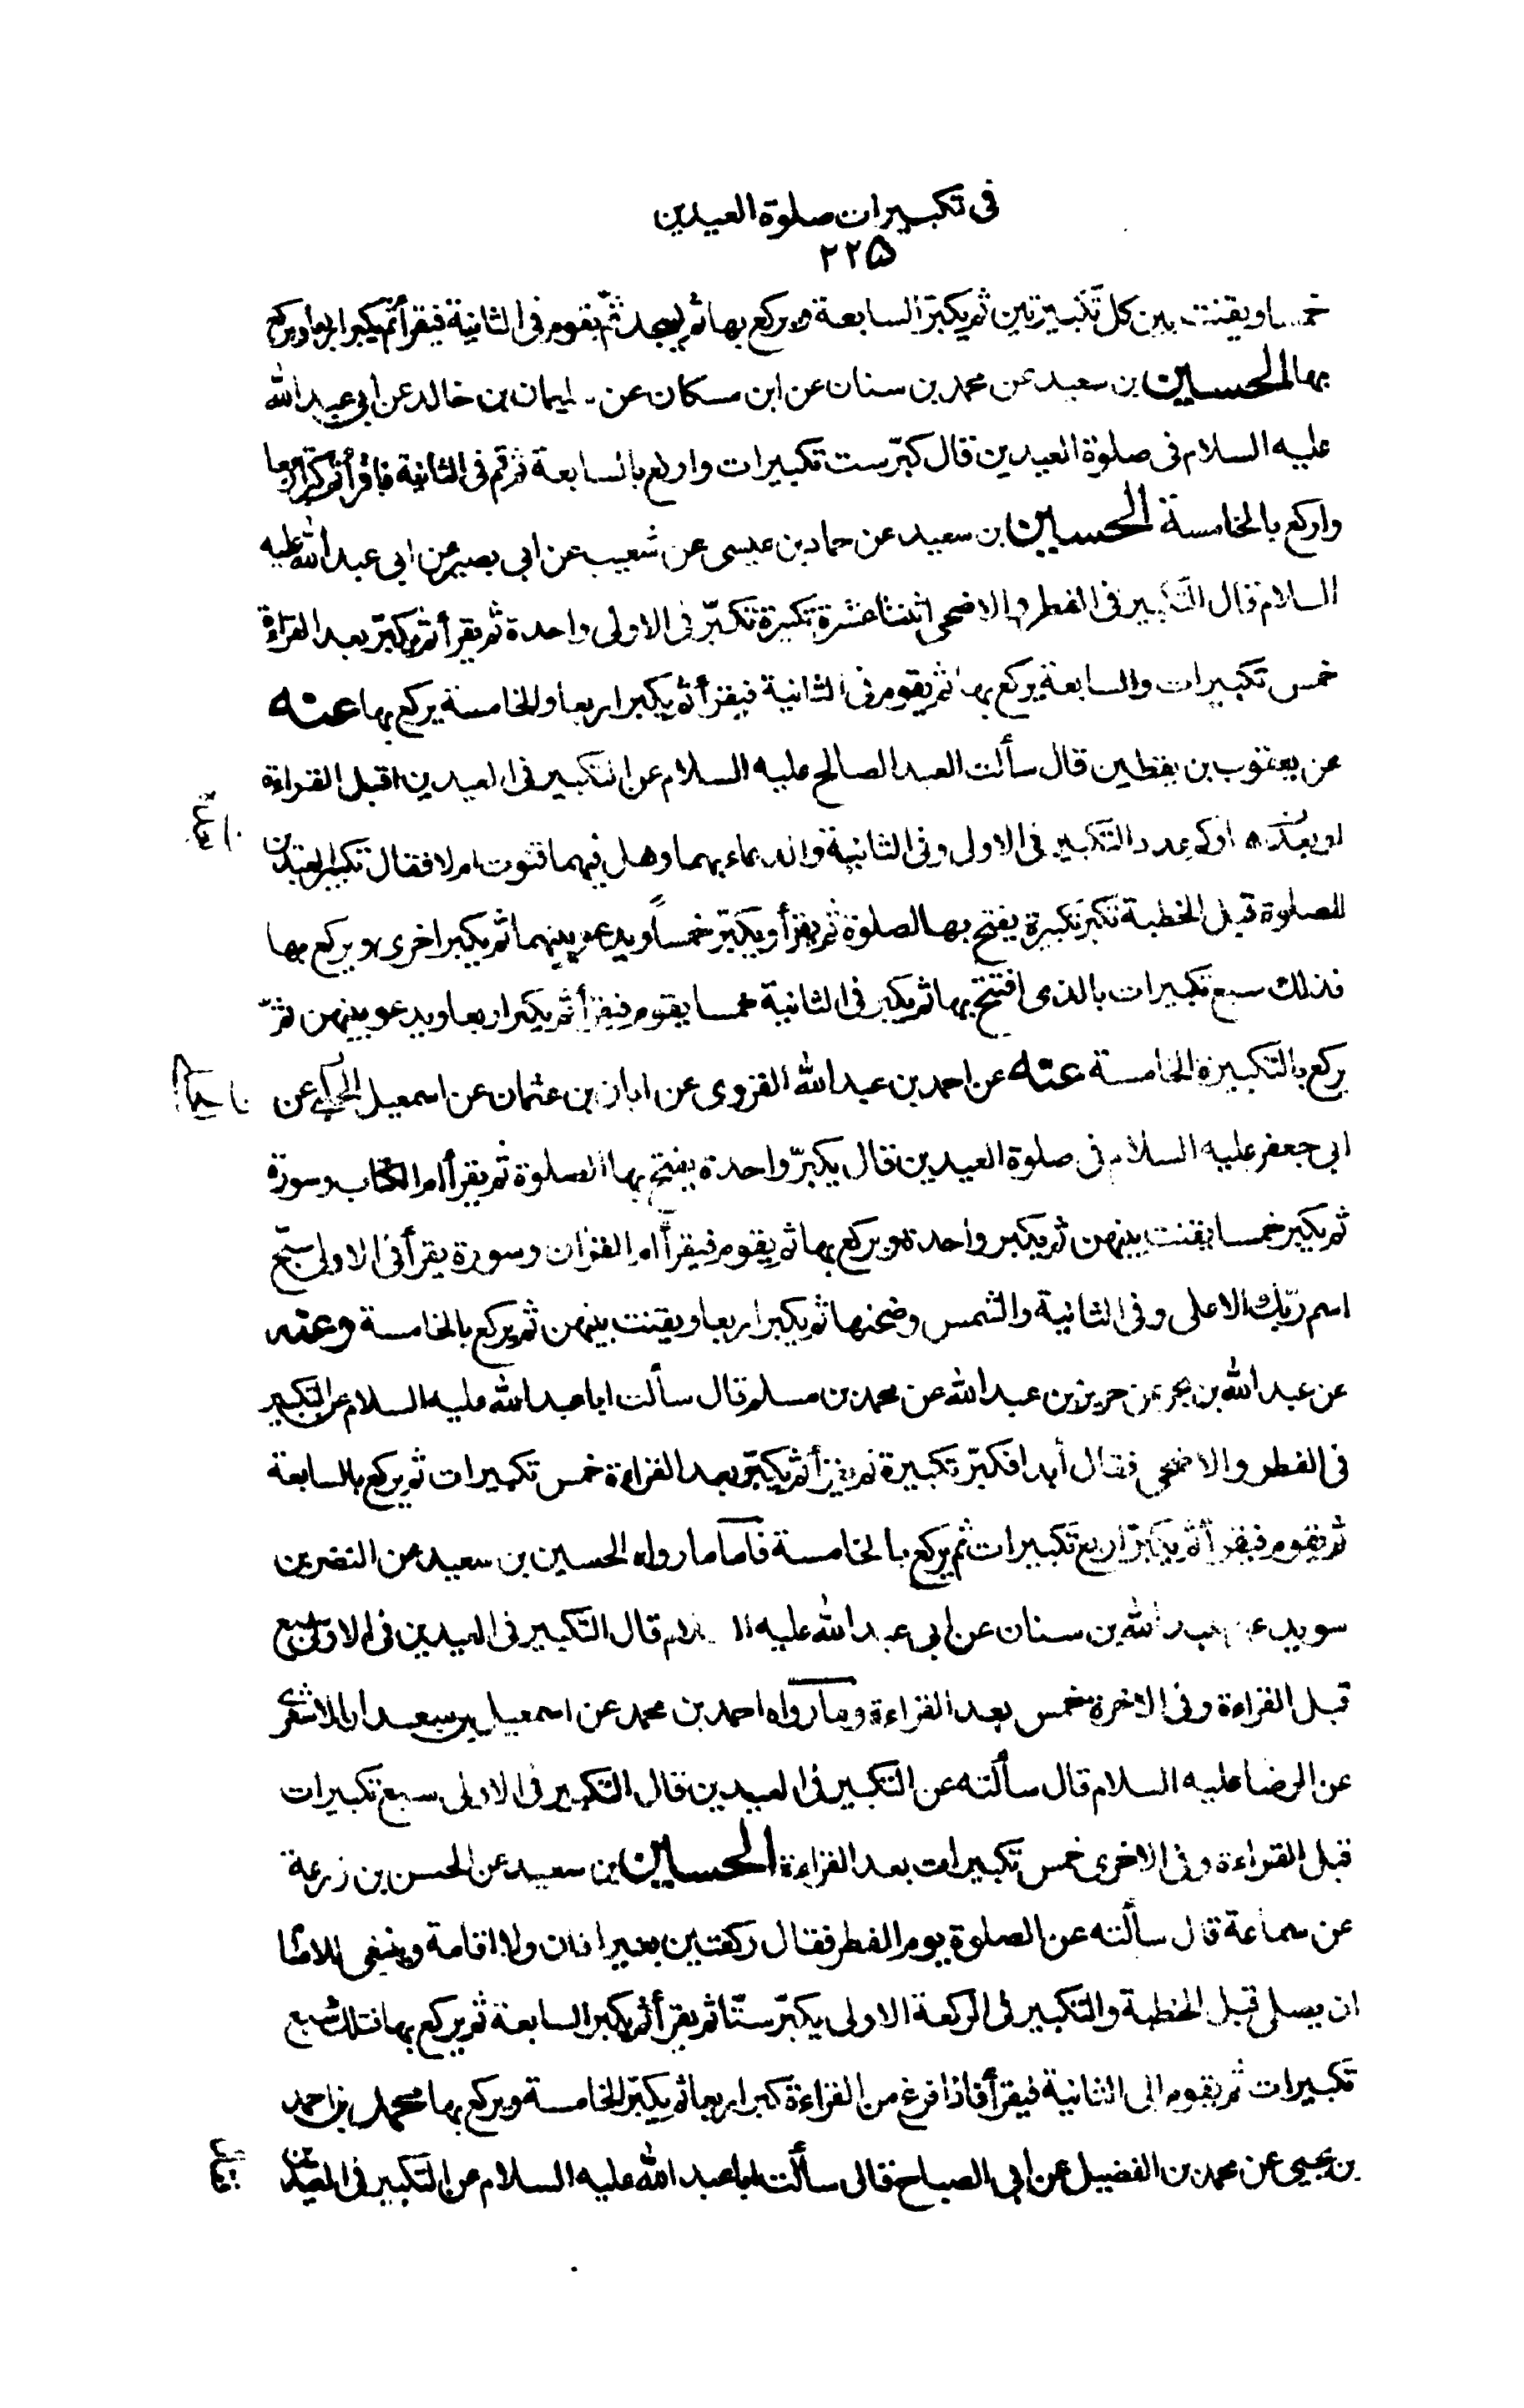 فى تكبيرات صلوة العيدين
٢٢۵
خمسا ويقنت بين كل تكبيرتين ثم يكبر السابعة ويركع بها ثم يسجد ثم يقوم فى الثانية فيقرأ ثم يكبر اربعا ويركع
بها الحسين بن سعيد عن محمد بن سنان عن ابن مسكان عن سليمان بن خالد عن ابى عبد الله
عليه السلام فى صلوة العيدين قال كبّر ست تكبيرات واركع بالسابعة ثم قم فى الثانية فاقرأ ثم كبّر اربعا
واركع بالخامسة الحسين بن سعيد عن حماد بن عيسى عن شعيب عن ابى بصير عن ابى عبد الله عليه
السلام قال التكبير فى الفطر والاضحى اثنتا عشرة تكبيرة تكبّر فى الاولى واحدة ثم يقرأ ثم يكبّر بعد القراءة
خمس تكبيرات والسابعة يركع بها ثم يقوم فى الثانية فيقرأ ثم يكبر اربعا والخامسة يركع بها عنه
عن يعقوب بن يقطين قال سألت العبد الصالح عليه السلام عن التكبير فى العيدين اقبل القراءة
او بعده اوكم عدد التكبير فى الاولى وفى الثانية والدعاء بهما وهل فيهما قنوت ام لا فقال تكبير العيدين
للصلوة قبل الخطبة تكبر تكبيرة يفتح بها الصلوة ثم يقرأ ويكبّر خمساً ويدعو بينهما ثم يكبر اخرى ويركع بها
فذلك سبع تكبيرات بالذى افتتح بها ثم يكبر فى الثانية خمسا يقوم فيقرأ ثم يكبر اربعا ويدعو بينهن ثمّ
يركع بالتكبيرة الخامسة عنه عن احمد بن عبد الله القروى عن ابان بن عثمان عن اسمعيل الجبلى عن
ابى جعفر عليه السلام فى صلوة العيدين قال يكبرّ واحدة يفتتح بها الصلوة ثم يقرأ ام الكتاب وسورة
ثم يكبر خمسا يقنت بينهن ثم يكبر واحدة ويركع بها ثم يقوم فيقرأ ام القران وسورة يقرأ فى الاولى سبّح
اسم ربّك الاعلى وفى الثانية والشمس وضحٰها ثم يكبر اربعا ويقنت بينهن ثم يركع بالخامسة وعنه
عن عبد الله بن بحر عن حريز بن عبد الله عن محمد بن مسلم قال سألت ابا عبد الله عليه السلام عن التكبير
فى الفطر والاضحى فقال أبدا فكبّر تكبيرة ثم يقرأ ثم يكبّر بعد القراءة خمس تكبيرات ثم يركع بالسابعة
ثم يقوم فيقرأ ثم يكبّر اربع تكبيرات ثم يركع بالخامسة فاما ما رواه الحسين بن سعيد عن النضر بن
سويد عن عبد الله بن سنان عن ابى عبد الله عليه السلام قال التكبير فى العيدين فى الاولى سبع
قبل القراءة وفى الاخرة خمس بعد القراءة وما رواه احمد بن محمد عن اسمعيل بن سعد الاشعرى
عن الرضا عليه السلام قال سألته عن التكبير فى العيدين قال التكبير فى الاولى سبع تكبيرات
قبل القراءة وفى الاخرى خمس تكبيرات بعد القراءة الحسين بن سعيد عن الحسن بن زرعة
عن سماعة قال سألته عن الصلوة يوم الفطر فقال ركعتين بغير اذان ولا اقامة وينبغى للامام
ان يصلى قبل الخطبة والتكبير فى الركعة الاولى يكبّر ستّا ثم يقرأ ثم يكبر السابعة ثم يركع بها فتلك سبع
تكبيرات ثم يقوم الى الثانية فيقرأ فاذا فرغ من القراءة كبر اربعا ثم يكبّر الخامسة ويركع بها محمد بن احمد
بن يحيى عن محمد بن الفضيل عن ابى الصباح قال سألت ابا عبد الله عليه السلام عن التكبير فى العيدين